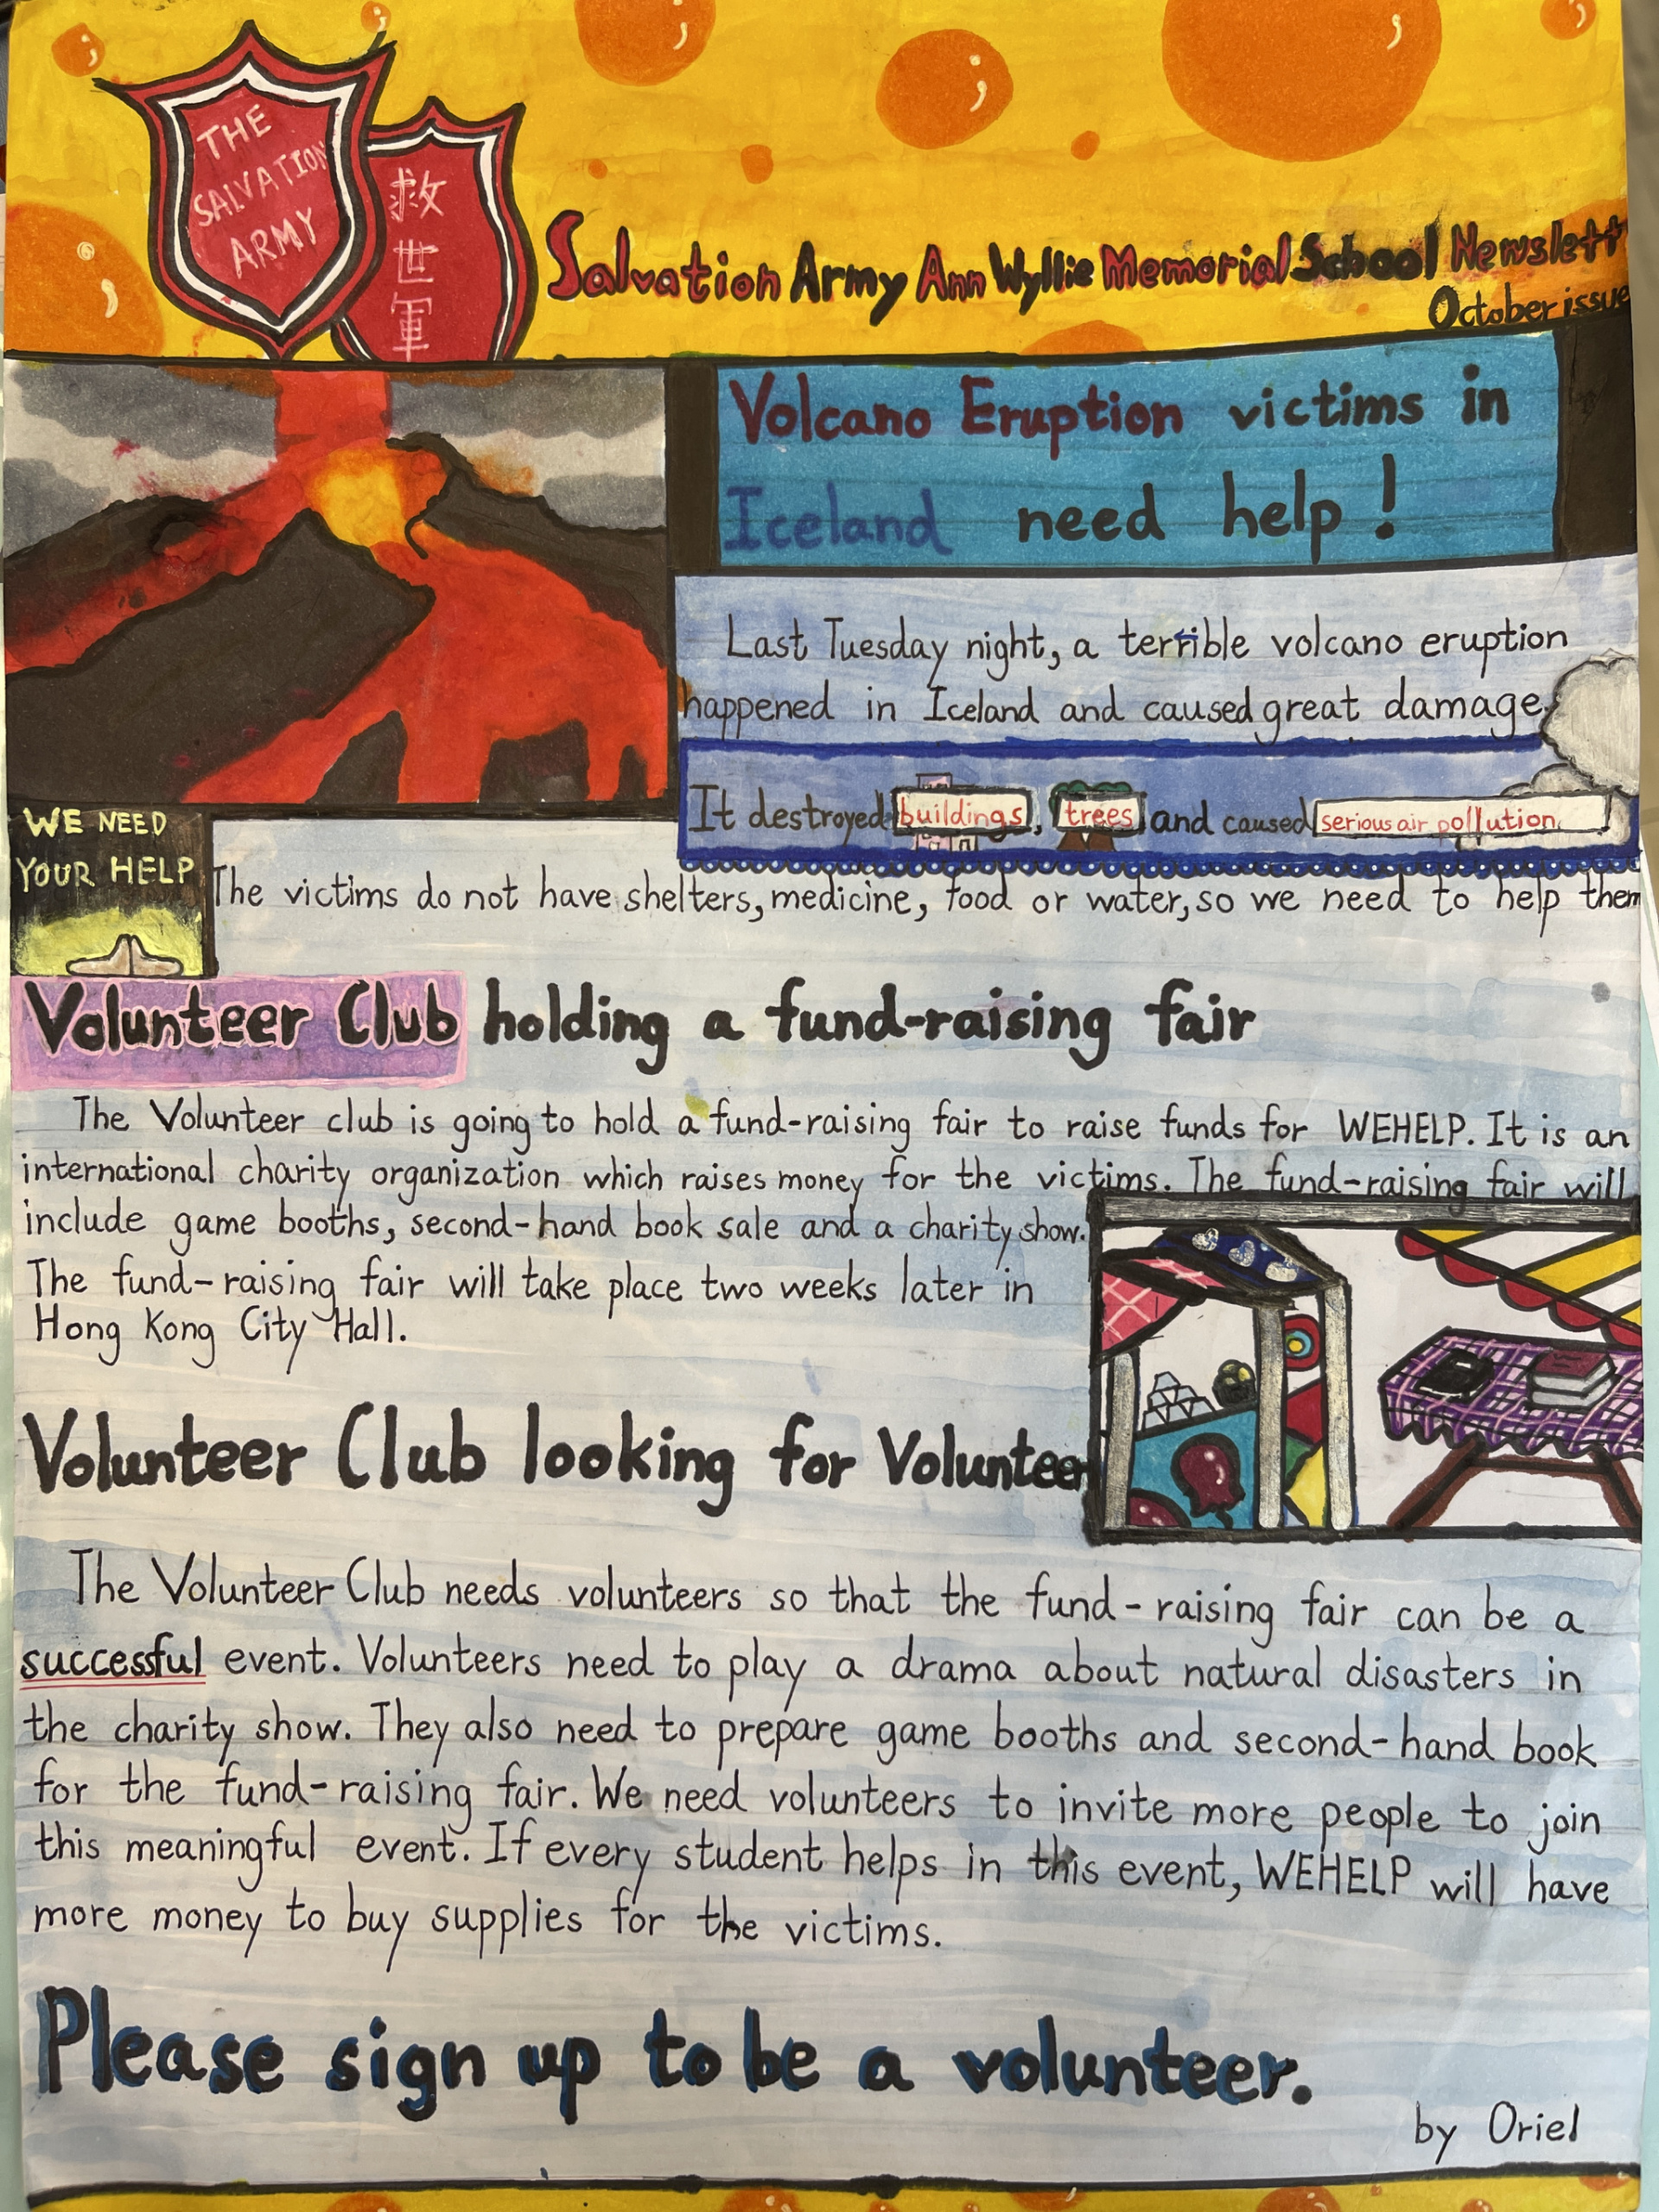 THE
SALVATION
ARMY
救
世
軍
Salvation Army Ann Wyllie Memorial School Newslett
October issue
Volcano Eruption victims in
Iceland need help!
Last Tuesday night, a terrible volcano eruption
happened in Iceland and caused great damage.
It destroyed buildings, trees and caused serious air pollution.
WE NEED
YOUR HELP
The victims do not have shelters, medicine, food or water, so we need to help them
Volunteer Club holding a fund-raising fair
The Volunteer club is going to hold a fund-raising fair to raise funds for WEHELP. It is an
international charity organization which raises money for the victims. The fund-raising fair will
include game booths, second-hand book sale and a charity show.
The fund-raising fair will take place two weeks later in
Hong Kong City Hall.
Volunteer Club looking for Volunteer
The Volunteer Club needs volunteers so that the fund-raising fair can be a
successful event. Volunteers need to play a drama about natural disasters in
the charity show. They also need to prepare game booths and second-hand book
for the fund-raising fair. We need volunteers to invite more people to join
this meaningful event. If every student helps in this event, WEHELP will have
more money to buy supplies for the victims.
Please sign up to be a volunteer.
by Oriel